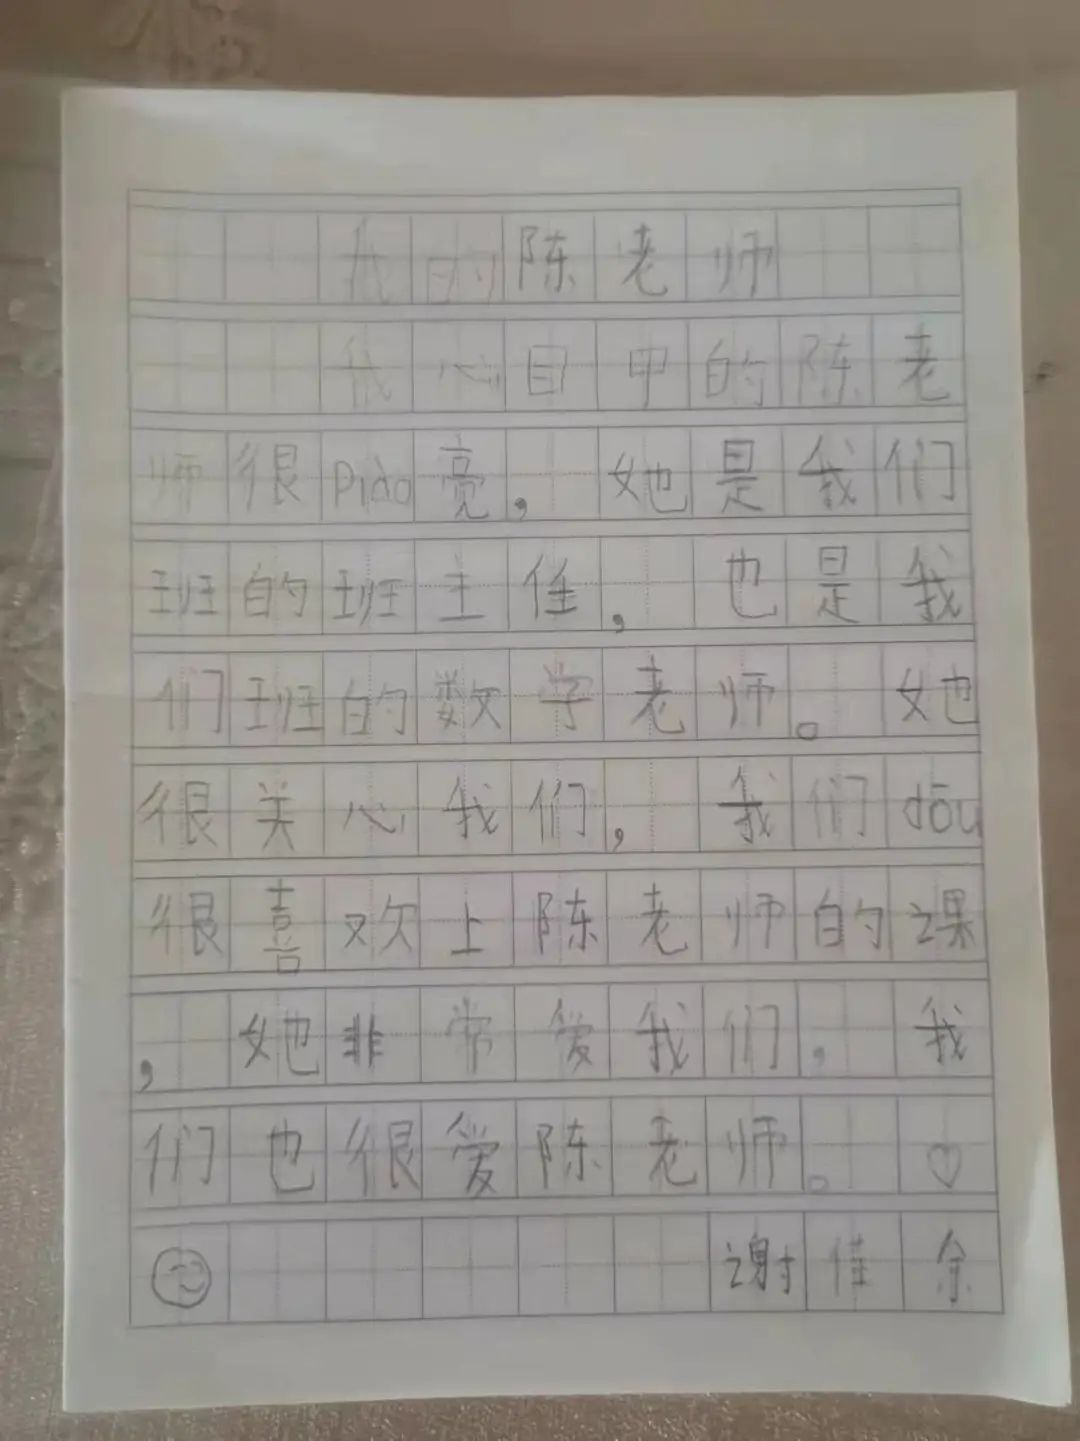 我的陈老师
我心目中的陈老
师很piào亮,她是我们
班的班主任,也是我
们班的数学老师。她
很关心我们,我们dōu
很喜欢上陈老师的课
,她非常爱我们,我
们也很爱陈老师。♡
谢佳余